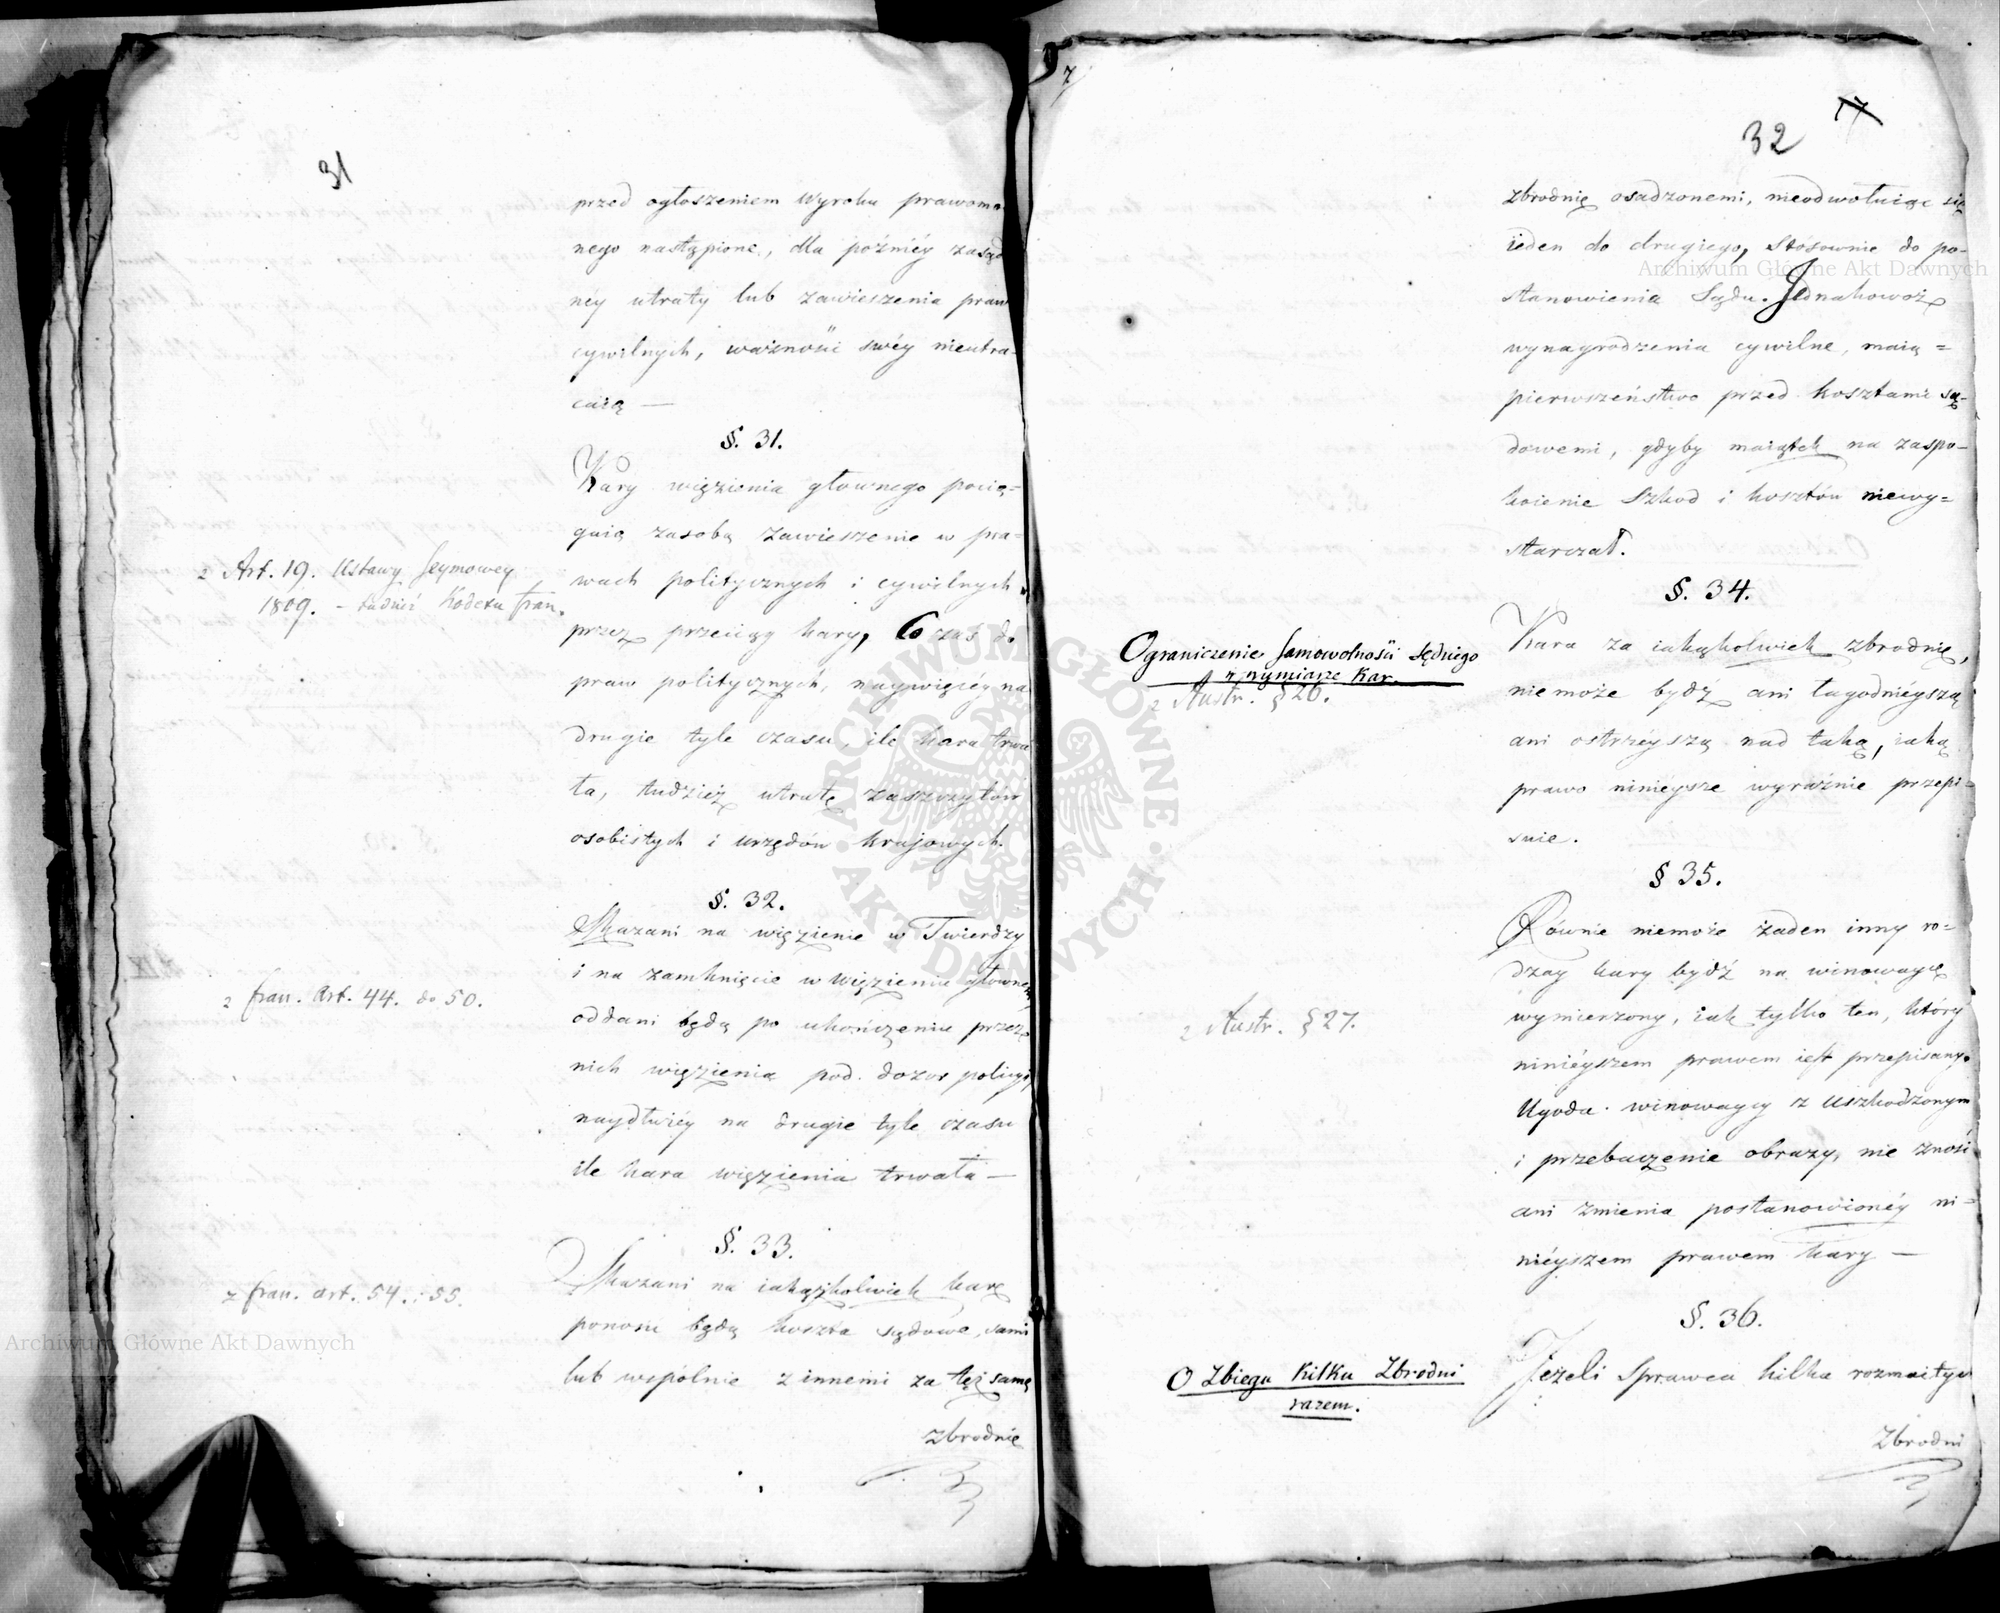 31
przed ogłoszeniem wyroku prawomo-
nego nastąpione, dla poźniéy zasąd
néy utraty lub zawieszenia praw
cywilnych, ważności swéy nieutra-
caią —
§. 31.
Kary więzienia głownego pocią=
gaią zasobą zawieszenie w pra=
wach politycznych i cywilnych
przez przeciąg kary, Co zaś do
praw politycznych, naywięcéy na
drugie tyle czasu, ile kara trwa
ła, tudzież utratę zaszczytów
osobistych i urzędów kraiowych.
z Art. 19. Ustawy Seymowey
1809. – Kodexu fran.
§. 32.
Skazani na więzienie w Twierdzy
i na zamknięcie w więzieniu głowne
oddani będą po ukończeniu przez
nich więzienia pod dozor policyi,
naydłużéy na drugie tyle czasu
ile kara więzienia trwała —
z fran. art. 44. do 50.
§. 33.
Skazani na iakążkolwiek karę
ponosić będą koszta sądowe, sami
lub wspólnie z innemi za tęż samę
zbrodnię
z fran. art. 54. i 55.
7
17
32
zbrodnię osadzonemi, nieodwołuiąc się
ieden do drugiego, stósownie do po-
stanowienia Sądu. Jednakowoż
wynagrodzenia cywilne, maią =
pierwszeństwo przed kosztami są-
dowemi, gdyby maiątek na zaspo-
koienie szkod i kosztów niewy=
starczał.
§. 34.
Ograniczenie samowolności sędziego
w wymiarze Kar.
z Austr. § 26.
Kara za iakąkolwiek zbrodnię,
niemoże bydź ani łagodniéyszą
ani ostrzéyszą nad taką, iaką
prawo niniéysze wyraźnie przepi-
suie.
§ 35.
Równie niemoże żaden inny ro=
dzay kary bydź na winowaycę
wymierzony, iak tylko ten, który
niniéyszem prawem iest przepisany.
Ugoda winowaycy z uszkodzonym
i przebaczenie obrazy, nie znosi
ani zmienia postanowionéy ni=
niéyszem prawem kary —
z Austr. § 27.
§. 36.
O Zbiegu kilku Zbrodni
razem.
Jeżeli Sprawca kilka rozmaitych
Zbrodni
Archiwum Główne Akt Dawnych
Archiwum Główne Akt Dawnych
ARCHIWUM GŁÓWNE · AKT DAWNYCH ·